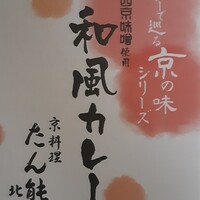 ーで巡る
京の味
シリーズ
西京味噌使用
和風カレー
京料理
たん熊
北